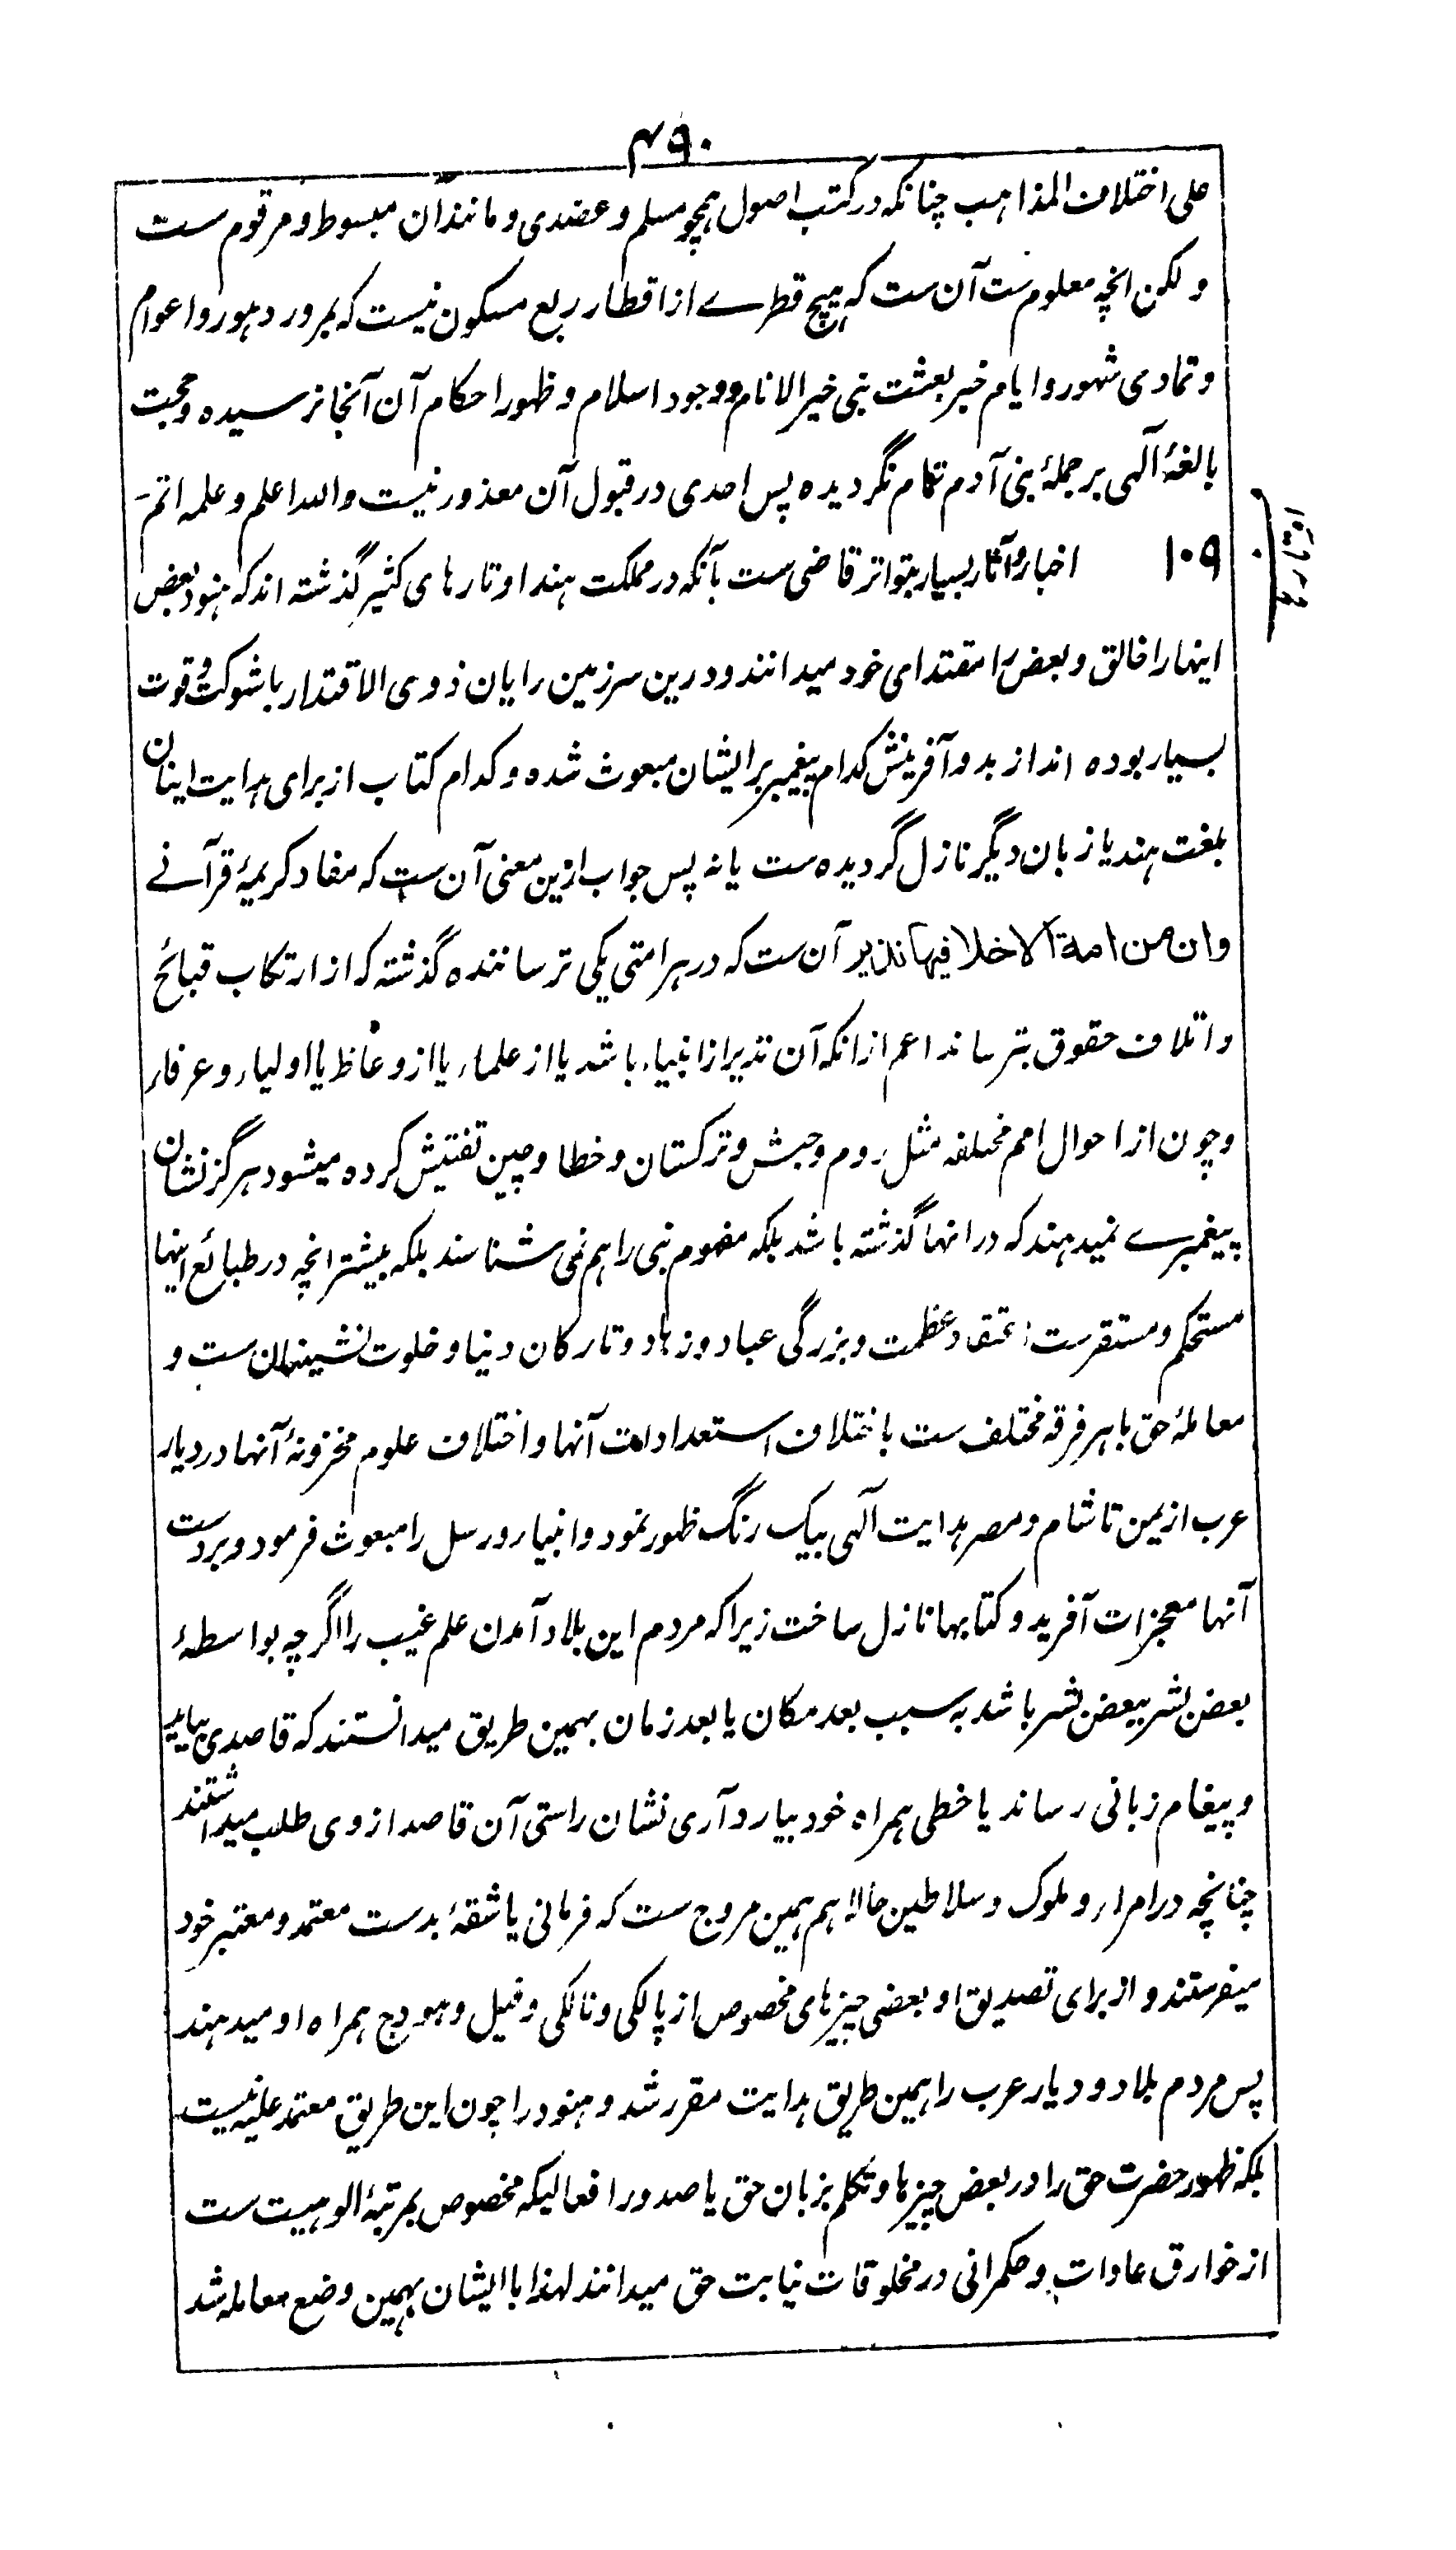 ۴۹۰
علی اختلاف المذاهب چنانکه در کتب اصول همچو مسلم و عضدی و مانندان مبسوط و مرقوم ست
ولکن انچه معلوم ست آن ست که هیچ قطرے از اقطار ربع مسکون نیست که بمرور دهور و اعوام
و تمادی شهور و ایام خبر بعثت نبی خیر الانام و وجود اسلام و ظهور احکام آن آنجا نرسیده و حجت
بالغهٔ آلهی بر جملهٔ بنی آدم تمام نگردیده پس احدی در قبول آن معذور نیست والله اعلم و علمه اتم
۱۰۹ اخبار و آثار بسیار بتواتر قاضی ست بآنکه در مملکت هند اوتارهای کثیر گذشته اند که هنود بعض
اینها را خالق و بعض را مقتدای خود میدانند و درین سرزمین رایان ذوی الاقتدار با شوکت و قوت
بسیار بوده اند از بدو آفرینش کدام پیغمبر بر ایشان مبعوث شده و کدام کتاب از برای هدایت اینان
بلغت هند یا زبان دیگر نازل گردیده ست یا نه پس جواب ازین معنی آن ست که مفاد کریمهٔ قرآنے
وان من امة الا خلا فیها نذیر آن ست که در هر امتی یکی ترساننده گذشته که از ارتکاب قبائح
و اتلاف حقوق بترساند اعم از انکه آن نذیر از انبیاء باشد یا از علماء یا از وعاظ یا اولیاء و عرفاء
و چون از احوال امم مختلفه مثل روم و حبش و ترکستان و خطا و چین تفتیش کرده میشود هرگز نشان
پیغمبرے نمیدهند که در انها گذشته باشد بلکه مفهوم نبی را هم نمی شناسند بلکه بیشتر انچه در طبائع اینها
مستحکم و مستقرست اعتقاد عظمت و بزرگی عباد و زهاد و تارکان دنیا و خلوت نشینان ست و
معاملهٔ حق با هر فرقه مختلف ست باختلاف استعدادات آنها و اختلاف علوم مخزونهٔ آنها در دیار
عرب از یمن تا شام و مصر هدایت آلهی بیک رنگ ظهور نمود و انبیاء و رسل را مبعوث فرمود و بر دست
آنها معجزات آفرید و کتابها نازل ساخت زیرا که مردم این بلاد آمدن علم غیب را اگرچه بواسطهٔ
بعض بشر ببعض بشر باشد به سبب بعد مکان یا بعد زمان بهمین طریق میدانستند که قاصدی بیاید
و پیغام زبانی رساند یا خطی همراه خود بیارد آری نشان راستی آن قاصد از وی طلب میداشتند
چنانچه در امراء و ملوک و سلاطین حالا هم همین مروج ست که فرمانی یا شقهٔ بدست معتمد و معتبر خود
میفرستند و از برای تصدیق او بعضی چیزهای مخصوص از پالکی و نالکی و فیل و هودج همراه او میدهند
پس مردم بلاد و دیار عرب را همین طریق هدایت مقرر شد و هنود را چون این طریق معتمد علیه نیست
بلکه ظهور حضرت حق را در بعض چیزها و تکلم بزبان حق یا صدور افعالیکه مخصوص بمرتبهٔ الوهیت ست
از خوارق عادات و حکمرانی در مخلوقات نیابت حق میدانند لهذا با ایشان بهمین وضع معامله شد